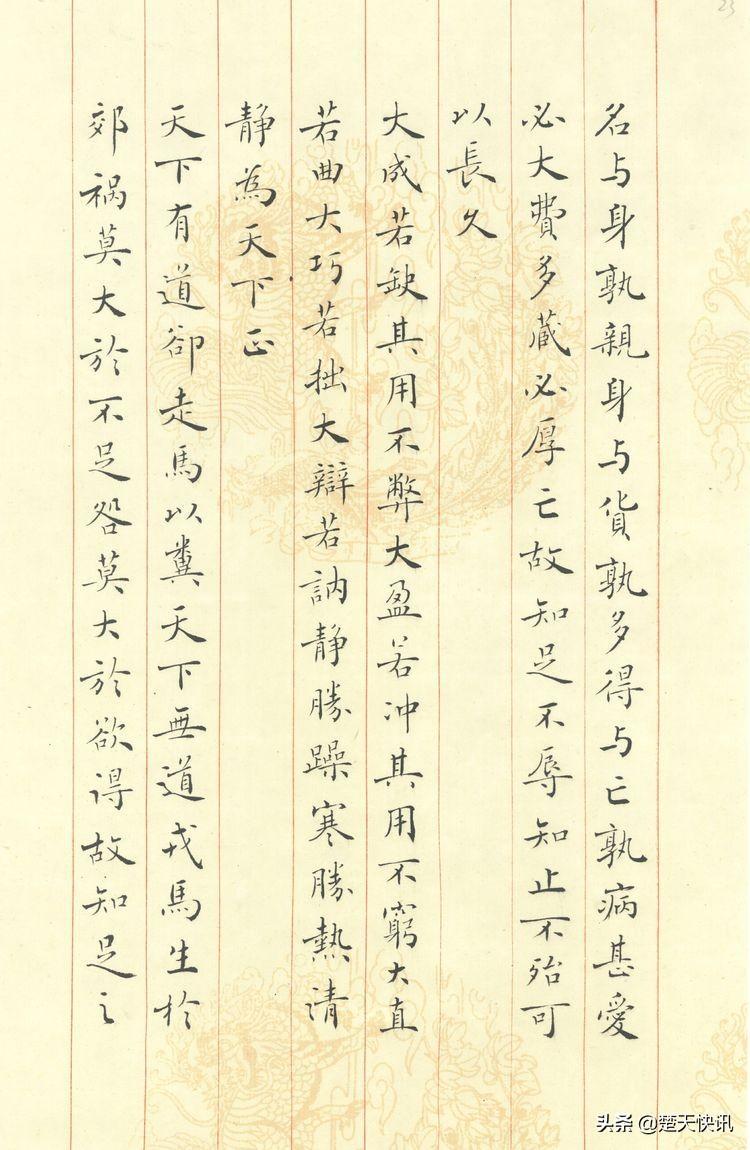 23
名与身孰親身与貨孰多得与亡孰病甚愛
必大費多藏必厚亡故知足不辱知止不殆可
以長久
大成若缺其用不弊大盈若冲其用不窮大直
若曲大巧若拙大辯若訥静勝躁寒勝熱清
静為天下正
天下有道卻走馬以糞天下無道戎馬生於
郊禍莫大於不足咎莫大於欲得故知足之
头条 @楚天快讯